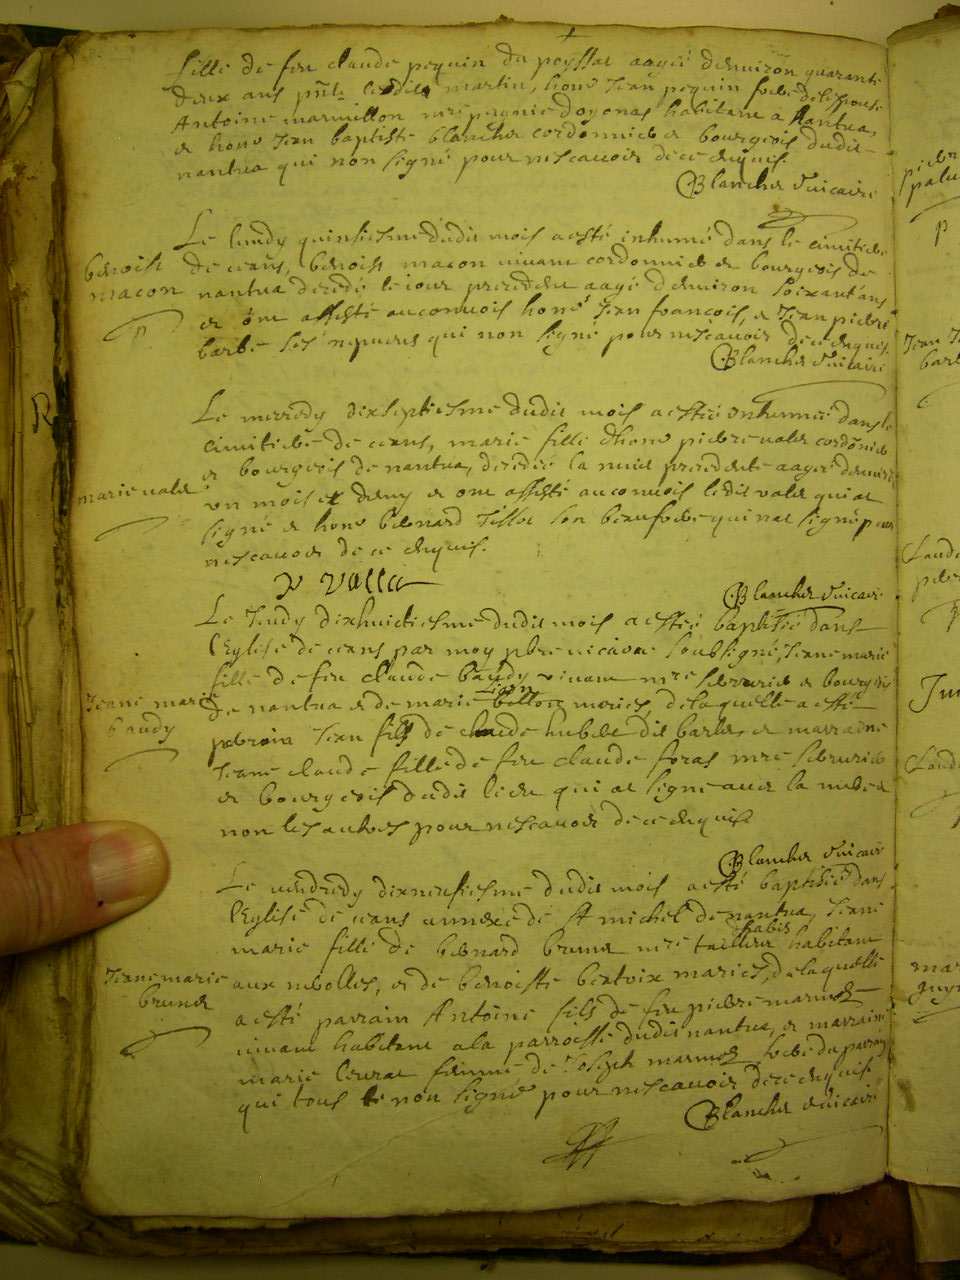 fille de feu claude pequin du poyssat aagée denviron quarante
deux ans p^nt les dits martin, hon^e Jean pequin frere de lespouse
Antoine marmillon m^re peignie doyonas habitant a Nantua,
et hon^e Jean baptiste blanchet cordonnier et bourgeois dudit
nantua qui non signé pour nescavoir de ce enquis.
Blanchet vicaire
Le lundy quinsiesme dudit mois a esté inhumé dans le cimitiere
de ceans, benoist macon vivant cordonnier et bourgeois de
benoist macon
nantua decedé le iour precedent aagé denviron soixant'ans
et ont assisté au convois hon^e Jean francois, et Jean pierre
barbe ses nepveus qui non signé pour nescavoir de ce enquis.
Blanchet vicaire
Le mecredy dixseptiesme dudit mois a estée enhumée dans le
cimitiere de ceans, marie fille dhon^e pierre valet cordonier
et bourgeois de nantua, decedée la nuit precedente aagée denviron
marie valet
un mois et demy et ont assisté au convois ledit valet qui a
signé et hon^e benoard tissot son beaufrere qui na signé pour
nescavoir de ce enquis.
p valla
Blanchet vicaire
Le Jeudy dixhuictiesme dudit mois a estée baptisée dans
l'Eglise de ceans par moy pbre vicaire soubsigné, Jeanne marie
fille de feu claude baudy vivant m^re serrurier et bourgeois
de nantua et de marie mariés, de laquelle a esté
Jeanne marie baudy
parrain Jean fils de claude hubert dit barbe, et marraine
Jeane claude fille de feu claude foras m^re serrurier
et bourgeois dudit lieu qui a signé avec la
non les autres pour nescavoir de ce enquis
Blanchet vicaire
Le vendredy dixneufiesme dudit mois a esté baptisée dans
l'Eglise de ceans annexe de St michel de nantua, Jeane
marie fille de benoard brunet m^re tailleur habis habitant
Jeane marie brunet
aux neiolles, et de benoiste bertoix mariés, de laquelle
a esté parrain Antoine fils de feu pierre marmet
vivant habitant a la parroisse dudit nantua, et marraine
marie femme de Joseph marmet frere du parrain
qui tous non signé pour nescavoir de ce enquis
Blanchet vicaire